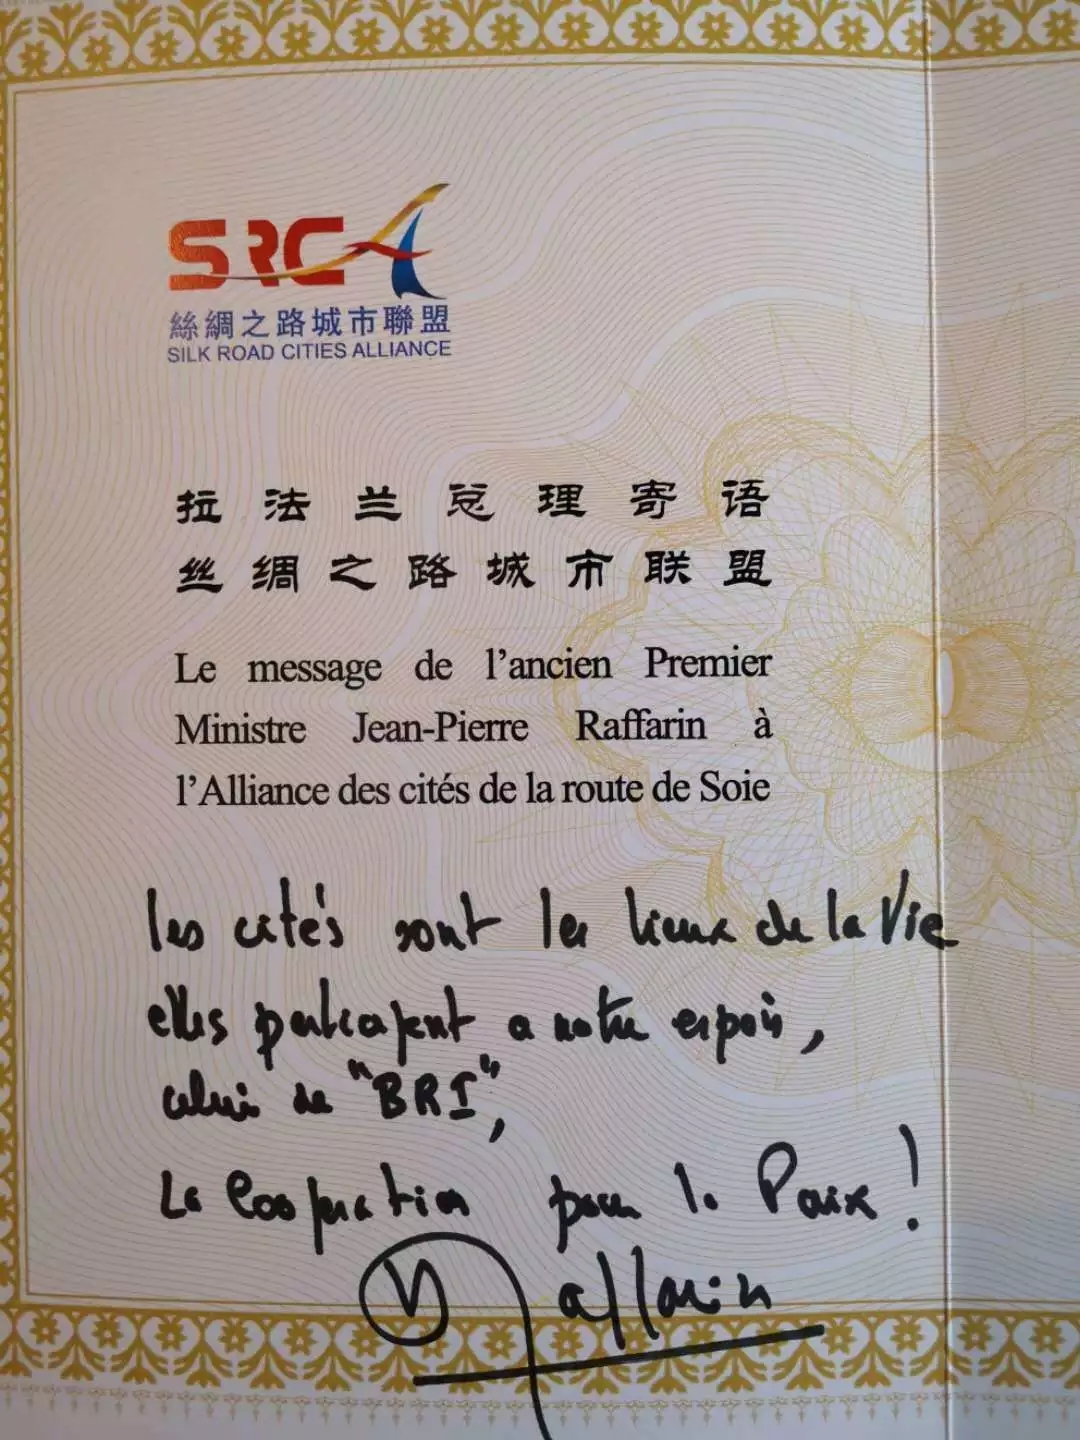 SRCA
絲綢之路城市聯盟
SILK ROAD CITIES ALLIANCE
拉法兰总理寄语
丝绸之路城市联盟
Le message de l'ancien Premier
Ministre Jean-Pierre Raffarin à
l'Alliance des cités de la route de Soie
les cités sont les lieux de la Vie
elles participent a notre espoir,
celui de "BRI",
La Coopération pour la Paix !
Raffarin